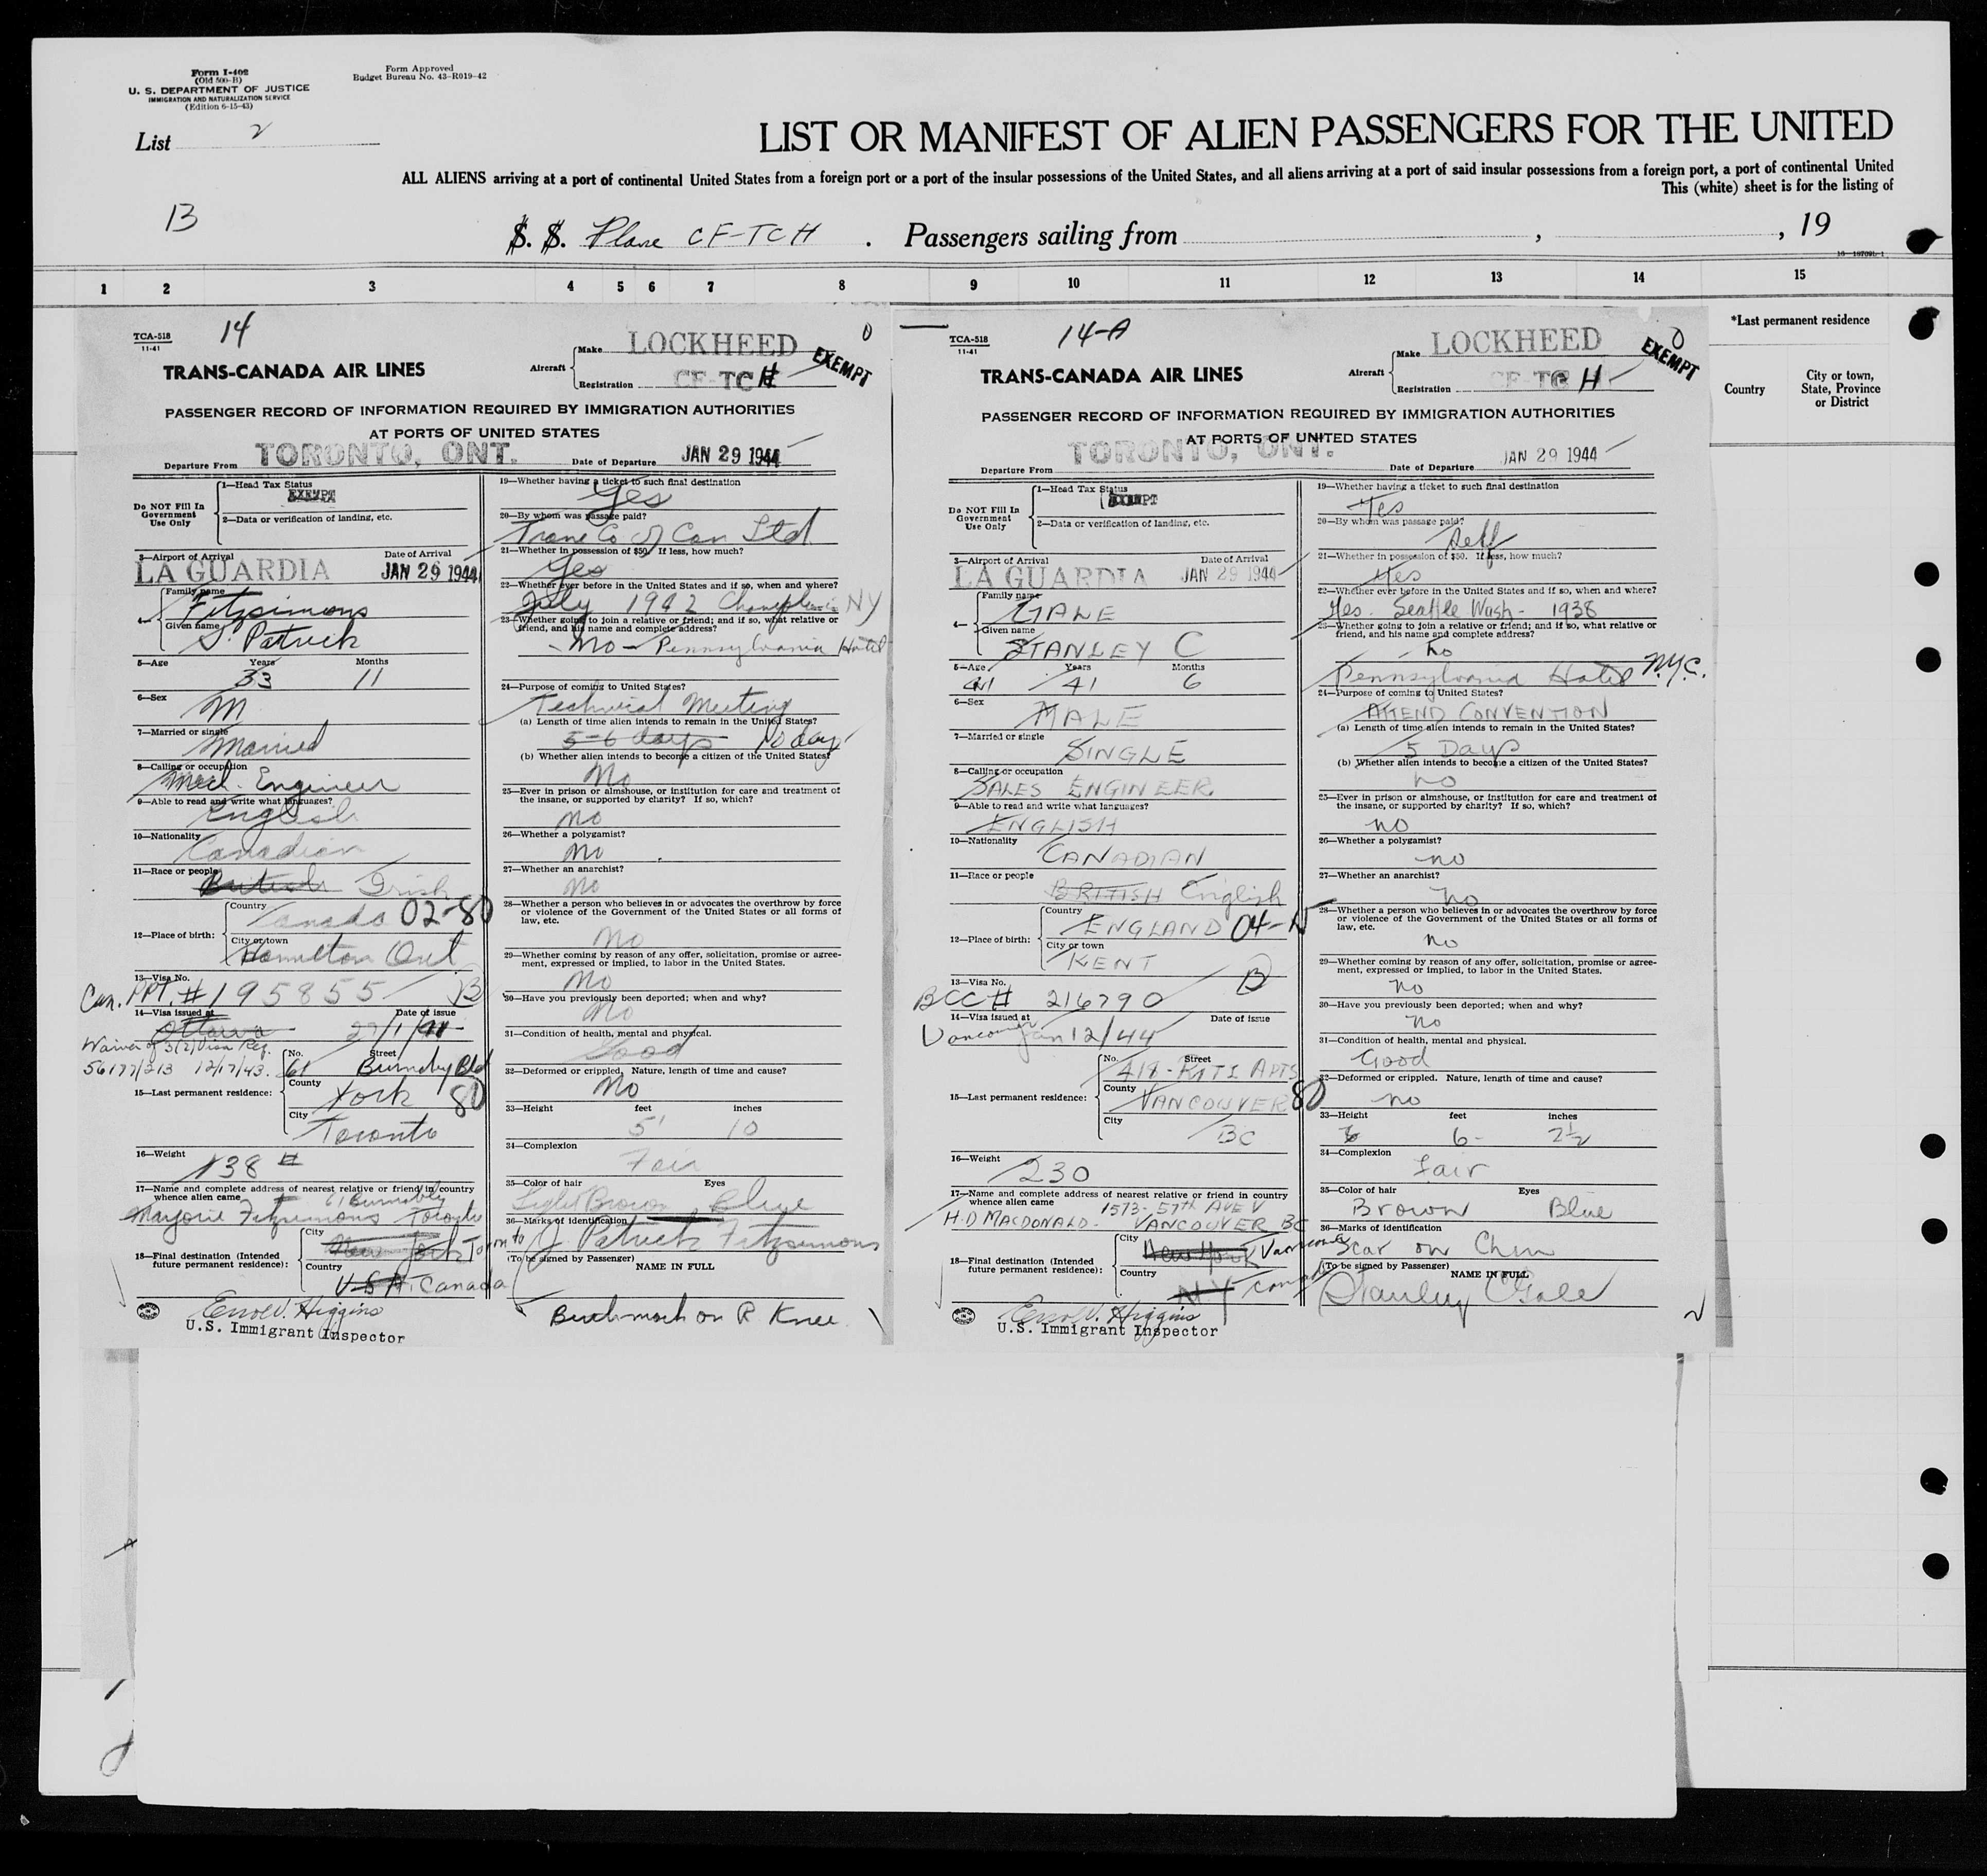 Form I-402
(Old 500-B)
U. S. DEPARTMENT OF JUSTICE
IMMIGRATION AND NATURALIZATION SERVICE
(Edition 6-15-43)
Form Approved
Budget Bureau No. 43-R019-42
List 2
LIST OR MANIFEST OF ALIEN PASSENGERS FOR THE UNITED
ALL ALIENS arriving at a port of continental United States from a foreign port or a port of the insular possessions of the United States, and all aliens arriving at a port of said insular possessions from a foreign port, a port of continental United
This (white) sheet is for the listing of
B
S. S. Plane CF-TCH . Passengers sailing from , , 19
1 2 3 4 5 6 7 8 9 10 11 12 13 14 15
*Last permanent residence
Country
City or town,
State, Province
or District
TCA-518
11-41
14
0
TRANS-CANADA AIR LINES
Aircraft
Make LOCKHEED
Registration CF-TCH
EXEMPT
PASSENGER RECORD OF INFORMATION REQUIRED BY IMMIGRATION AUTHORITIES
AT PORTS OF UNITED STATES
Departure From TORONTO, ONT. Date of Departure JAN 29 1944
Do NOT Fill In
Government
Use Only
1—Head Tax Status
EXEMPT
2—Data or verification of landing, etc.
3—Airport of Arrival Date of Arrival
LA GUARDIA JAN 29 1944
4—
Family name
Fitzsimons
Given name
J. Patrick
5—Age Years Months
33 11
6—Sex
M
7—Married or single
Married
8—Calling or occupation
Mech. Engineer
9—Able to read and write what languages?
English
10—Nationality
Canadian
11—Race or people
British Irish
12—Place of birth:
Country
Canada 02-80
City or town
Hamilton Ont
13—Visa No.
Can. PPT. # 195855 B
14—Visa issued at Date of issue
Ottawa
Waiver of 3(2) Visa Req.
56177/213 12/17/43.
15—Last permanent residence:
No. Street
61 Burnaby Bld
County
York 80
City
Toronto
16—Weight
138 #
17—Name and complete address of nearest relative or friend in country
whence alien came
61 Burnaby
Marjorie Fitzsimons Toronto
18—Final destination (Intended
future permanent residence):
City
New York Toronto
Country
USA. Canada
Errol V. Higgins
U.S. Immigrant Inspector
19—Whether having a ticket to such final destination
Yes
20—By whom was passage paid?
Trane Co of Can Ltd
21—Whether in possession of $50. If less, how much?
Yes
22—Whether ever before in the United States and if so, when and where?
July 1942 NY
23—Whether going to join a relative or friend; and if so, what relative or
friend, and his name and complete address?
No — Pennsylvania Hotel
24—Purpose of coming to United States?
Technical Meeting
(a) Length of time alien intends to remain in the United States?
5-6 days 10 days
(b) Whether alien intends to become a citizen of the United States?
No
25—Ever in prison or almshouse, or institution for care and treatment of
the insane, or supported by charity? If so, which?
No
26—Whether a polygamist?
No
27—Whether an anarchist?
No
28—Whether a person who believes in or advocates the overthrow by force
or violence of the Government of the United States or all forms of
law, etc.
No
29—Whether coming by reason of any offer, solicitation, promise or agree-
ment, expressed or implied, to labor in the United States.
No
30—Have you previously been deported; when and why?
No
31—Condition of health, mental and physical.
Good
32—Deformed or crippled. Nature, length of time and cause?
No
33—Height feet inches
5' 10
34—Complexion
Fair
35—Color of hair Eyes
Light Brown Blue
36—Marks of identification
J. Patrick Fitzsimons
(To be signed by Passenger) NAME IN FULL
Birthmark on R Knee
TCA-518
11-41
14-A
0
TRANS-CANADA AIR LINES
Aircraft
Make LOCKHEED
Registration CF-TCH
EXEMPT
PASSENGER RECORD OF INFORMATION REQUIRED BY IMMIGRATION AUTHORITIES
AT PORTS OF UNITED STATES
Departure From TORONTO, ONT. Date of Departure JAN 29 1944
Do NOT Fill In
Government
Use Only
1—Head Tax Status
EXEMPT
2—Data or verification of landing, etc.
3—Airport of Arrival Date of Arrival
LA GUARDIA JAN 29 1944
4—
Family name
GALE
Given name
STANLEY C
5—Age Years Months
41 41 6
6—Sex
MALE
7—Married or single
SINGLE
8—Calling or occupation
SALES ENGINEER
9—Able to read and write what languages?
ENGLISH
10—Nationality
CANADIAN
11—Race or people
BRITISH English
12—Place of birth:
Country
ENGLAND
City or town
KENT
13—Visa No.
BCC # 216790 B
14—Visa issued at Date of issue
Vancouver Jan 12/44
15—Last permanent residence:
No. Street
County
VANCOUVER 80
City
BC
16—Weight
230
17—Name and complete address of nearest relative or friend in country
whence alien came
1573- 57th AVE W
H.D MACDONALD - VANCOUVER BC
18—Final destination (Intended
future permanent residence):
City
New York Vancouver
Country
NY Canada
Errol V. Higgins
U.S. Immigrant Inspector
19—Whether having a ticket to such final destination
Yes
20—By whom was passage paid?
Self
21—Whether in possession of $50. If less, how much?
Yes
22—Whether ever before in the United States and if so, when and where?
Yes. Seattle Wash - 1938
23—Whether going to join a relative or friend; and if so, what relative or
friend, and his name and complete address?
No
Pennsylvania Hotel N.Y.C.
24—Purpose of coming to United States?
ATTEND CONVENTION
(a) Length of time alien intends to remain in the United States?
5 Days
(b) Whether alien intends to become a citizen of the United States?
no
25—Ever in prison or almshouse, or institution for care and treatment of
the insane, or supported by charity? If so, which?
no
26—Whether a polygamist?
no
27—Whether an anarchist?
no
28—Whether a person who believes in or advocates the overthrow by force
or violence of the Government of the United States or all forms of
law, etc.
no
29—Whether coming by reason of any offer, solicitation, promise or agree-
ment, expressed or implied, to labor in the United States.
no
30—Have you previously been deported; when and why?
no
31—Condition of health, mental and physical.
Good
32—Deformed or crippled. Nature, length of time and cause?
no
33—Height feet inches
6- 2½
34—Complexion
fair
35—Color of hair Eyes
Brown Blue
36—Marks of identification
Scar on Chin
(To be signed by Passenger) NAME IN FULL
Stanley C Gale